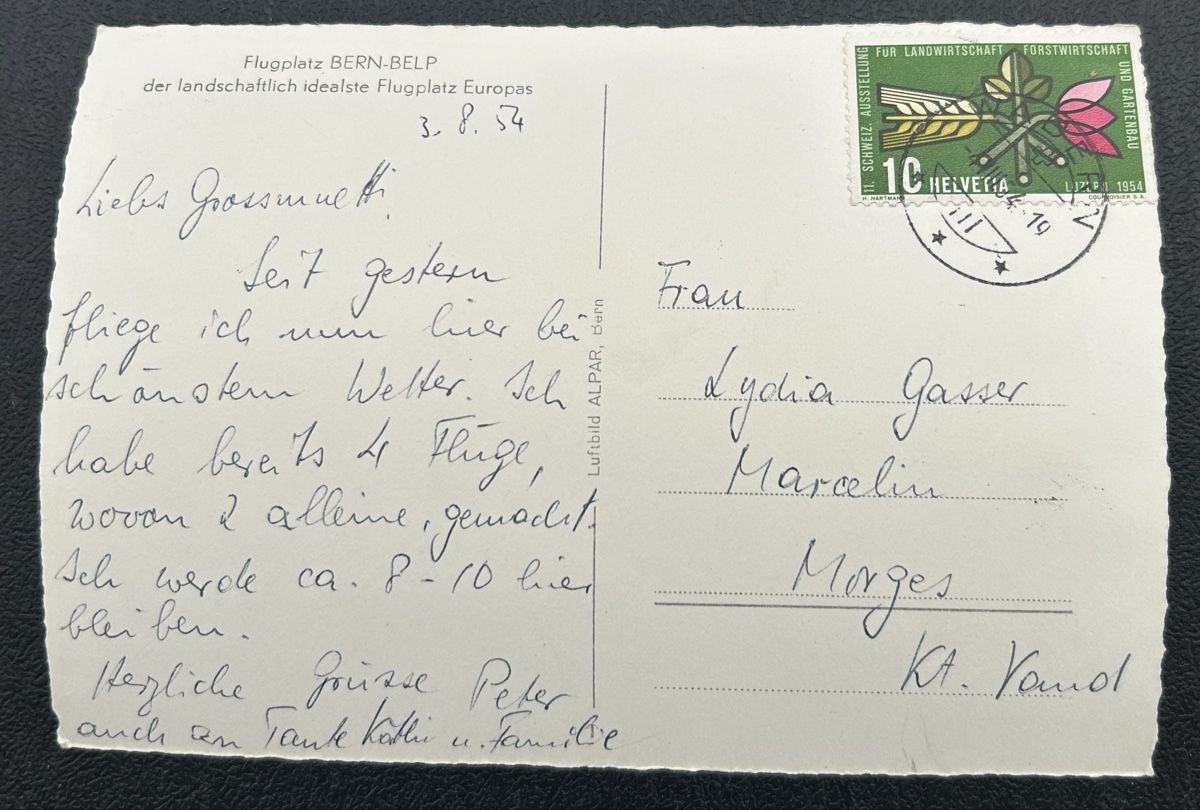 Flugplatz BERN-BELP
der landschaftlich idealste Flugplatz Europas
3. 8. 54
Liebs Grossmuetti,
Seit gestern
fliege ich nun hier bei
schönstem Wetter. Ich
habe bereits 4 Flüge,
wovon 2 alleine, gemacht.
Ich werde ca. 8-10 hier
bleiben.
Herzliche Grüsse Peter
auch an Tante Käthi u. Familie
Luftbild ALPAR, Bern
11. SCHWEIZ. AUSSTELLUNG FÜR LANDWIRTSCHAFT FORSTWIRTSCHAFT UND GARTENBAU
10 HELVETIA LUZERN 1954
H. HARTMANN COURVOISIER S.A.
Frau
Lydia Gasser
Marcelin
Morges
Kt. Vaud